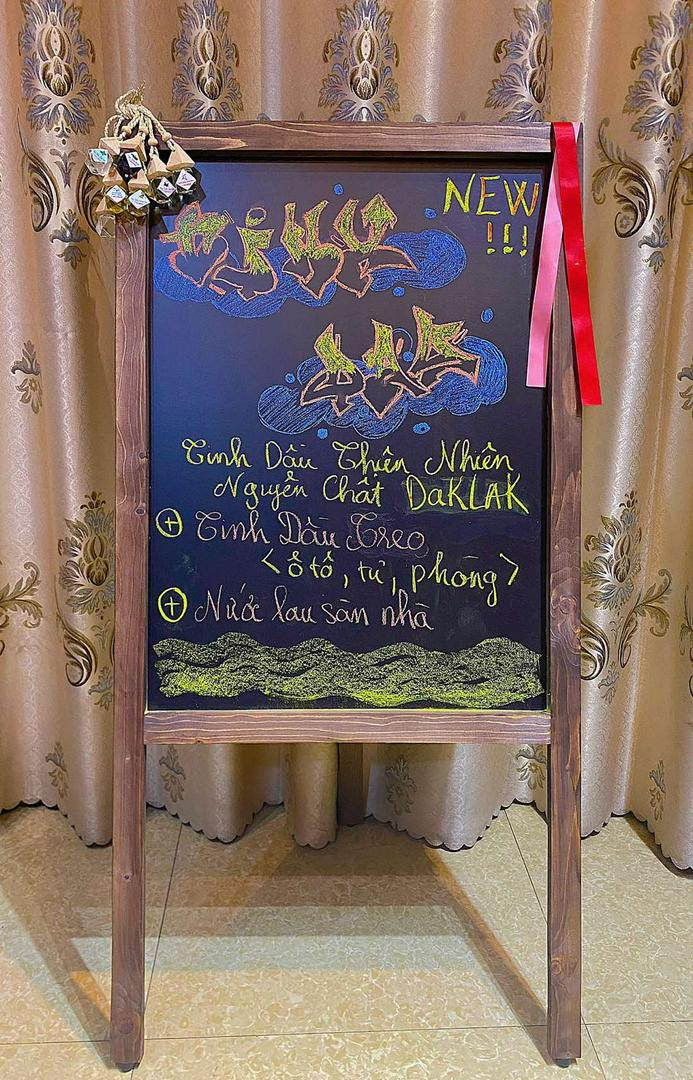 NEW
!!!
Tinh Dầu Thiên Nhiên
Nguyên Chất DaKLAK
⊕ Tinh Dầu Treo
<ô tô, tủ, phòng>
⊕ Nước lau sàn nhà